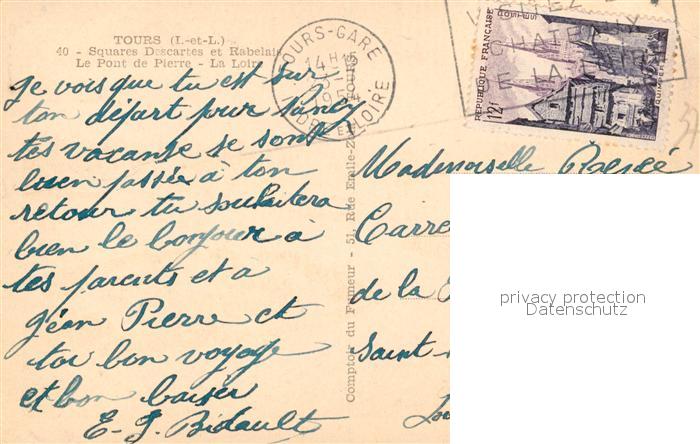 TOURS (I.-et-L.)
40 - Squares Descartes et Rabelais
Le Pont de Pierre - La Loire
je vois que tu est sur
ton départ pour
tes vacanse se sont
bien passée à ton
retour tu souhaitera
bien le bonjour à
tes parents et à
Jéan Pierre et
toi bon voyage
et bon baiser
E. J. Bidault
Comptoir du Fumeur - 51, Rue Emile-Zola - TOURS
TOURS-GARE
14 H
INDRE-ET-LOIRE
VISITEZ
CHATEAUX
DE LA LOIRE
REPUBLIQUE FRANÇAISE
POSTES
QUIMPER
12F
Mademoiselle
Carre
de la
Saint-
privacy protection
Datenschutz